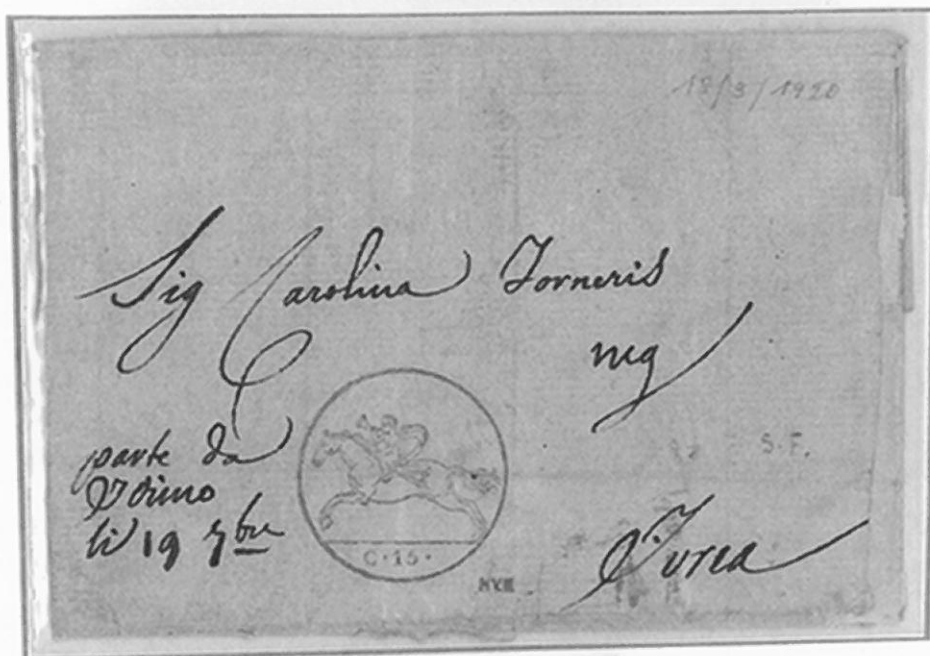 18/3/1920
Sig Carolina Torneris
neg
parte da
li 19 7bre
C·15·
S.F.
Ivrea